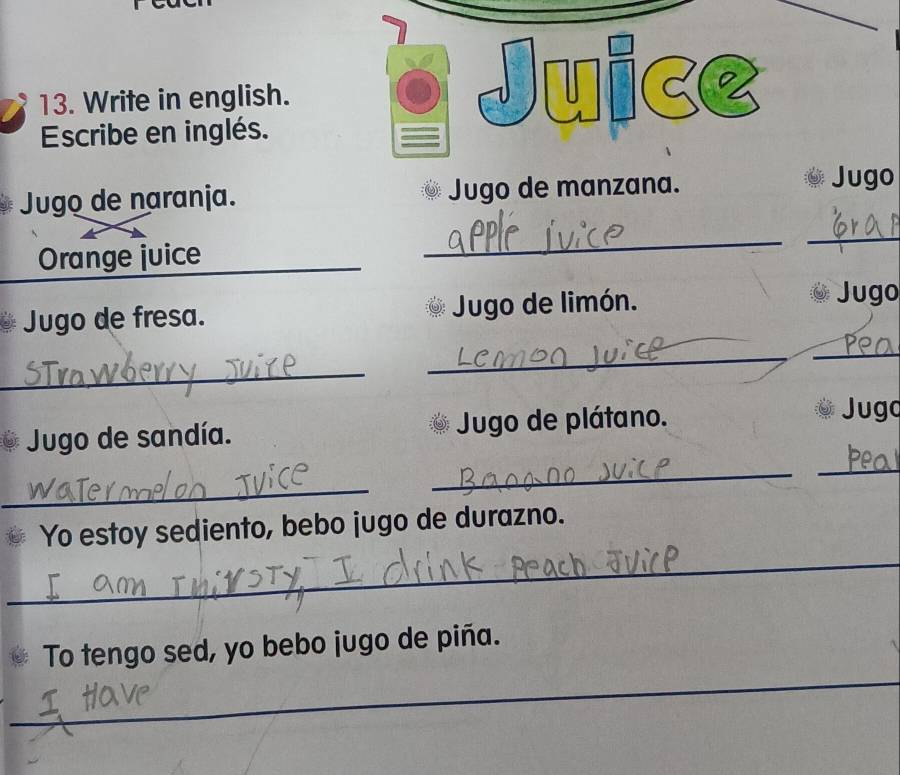 Juice
13. Write in english.
Escribe en inglés.
Jugo de naranja.
Jugo de manzana.
Jugo
Orange juice
apple juice
Gra
Jugo de fresa.
Jugo de limón.
Jugo
Strawberry Juice
Lemon juice
Pea
Jugo de sandía.
Jugo de plátano.
Jugo
Watermelon Juice
Banano juice
pea
Yo estoy sediento, bebo jugo de durazno.
I am Thirsty, I drink peach Juice
To tengo sed, yo bebo jugo de piña.
I Have